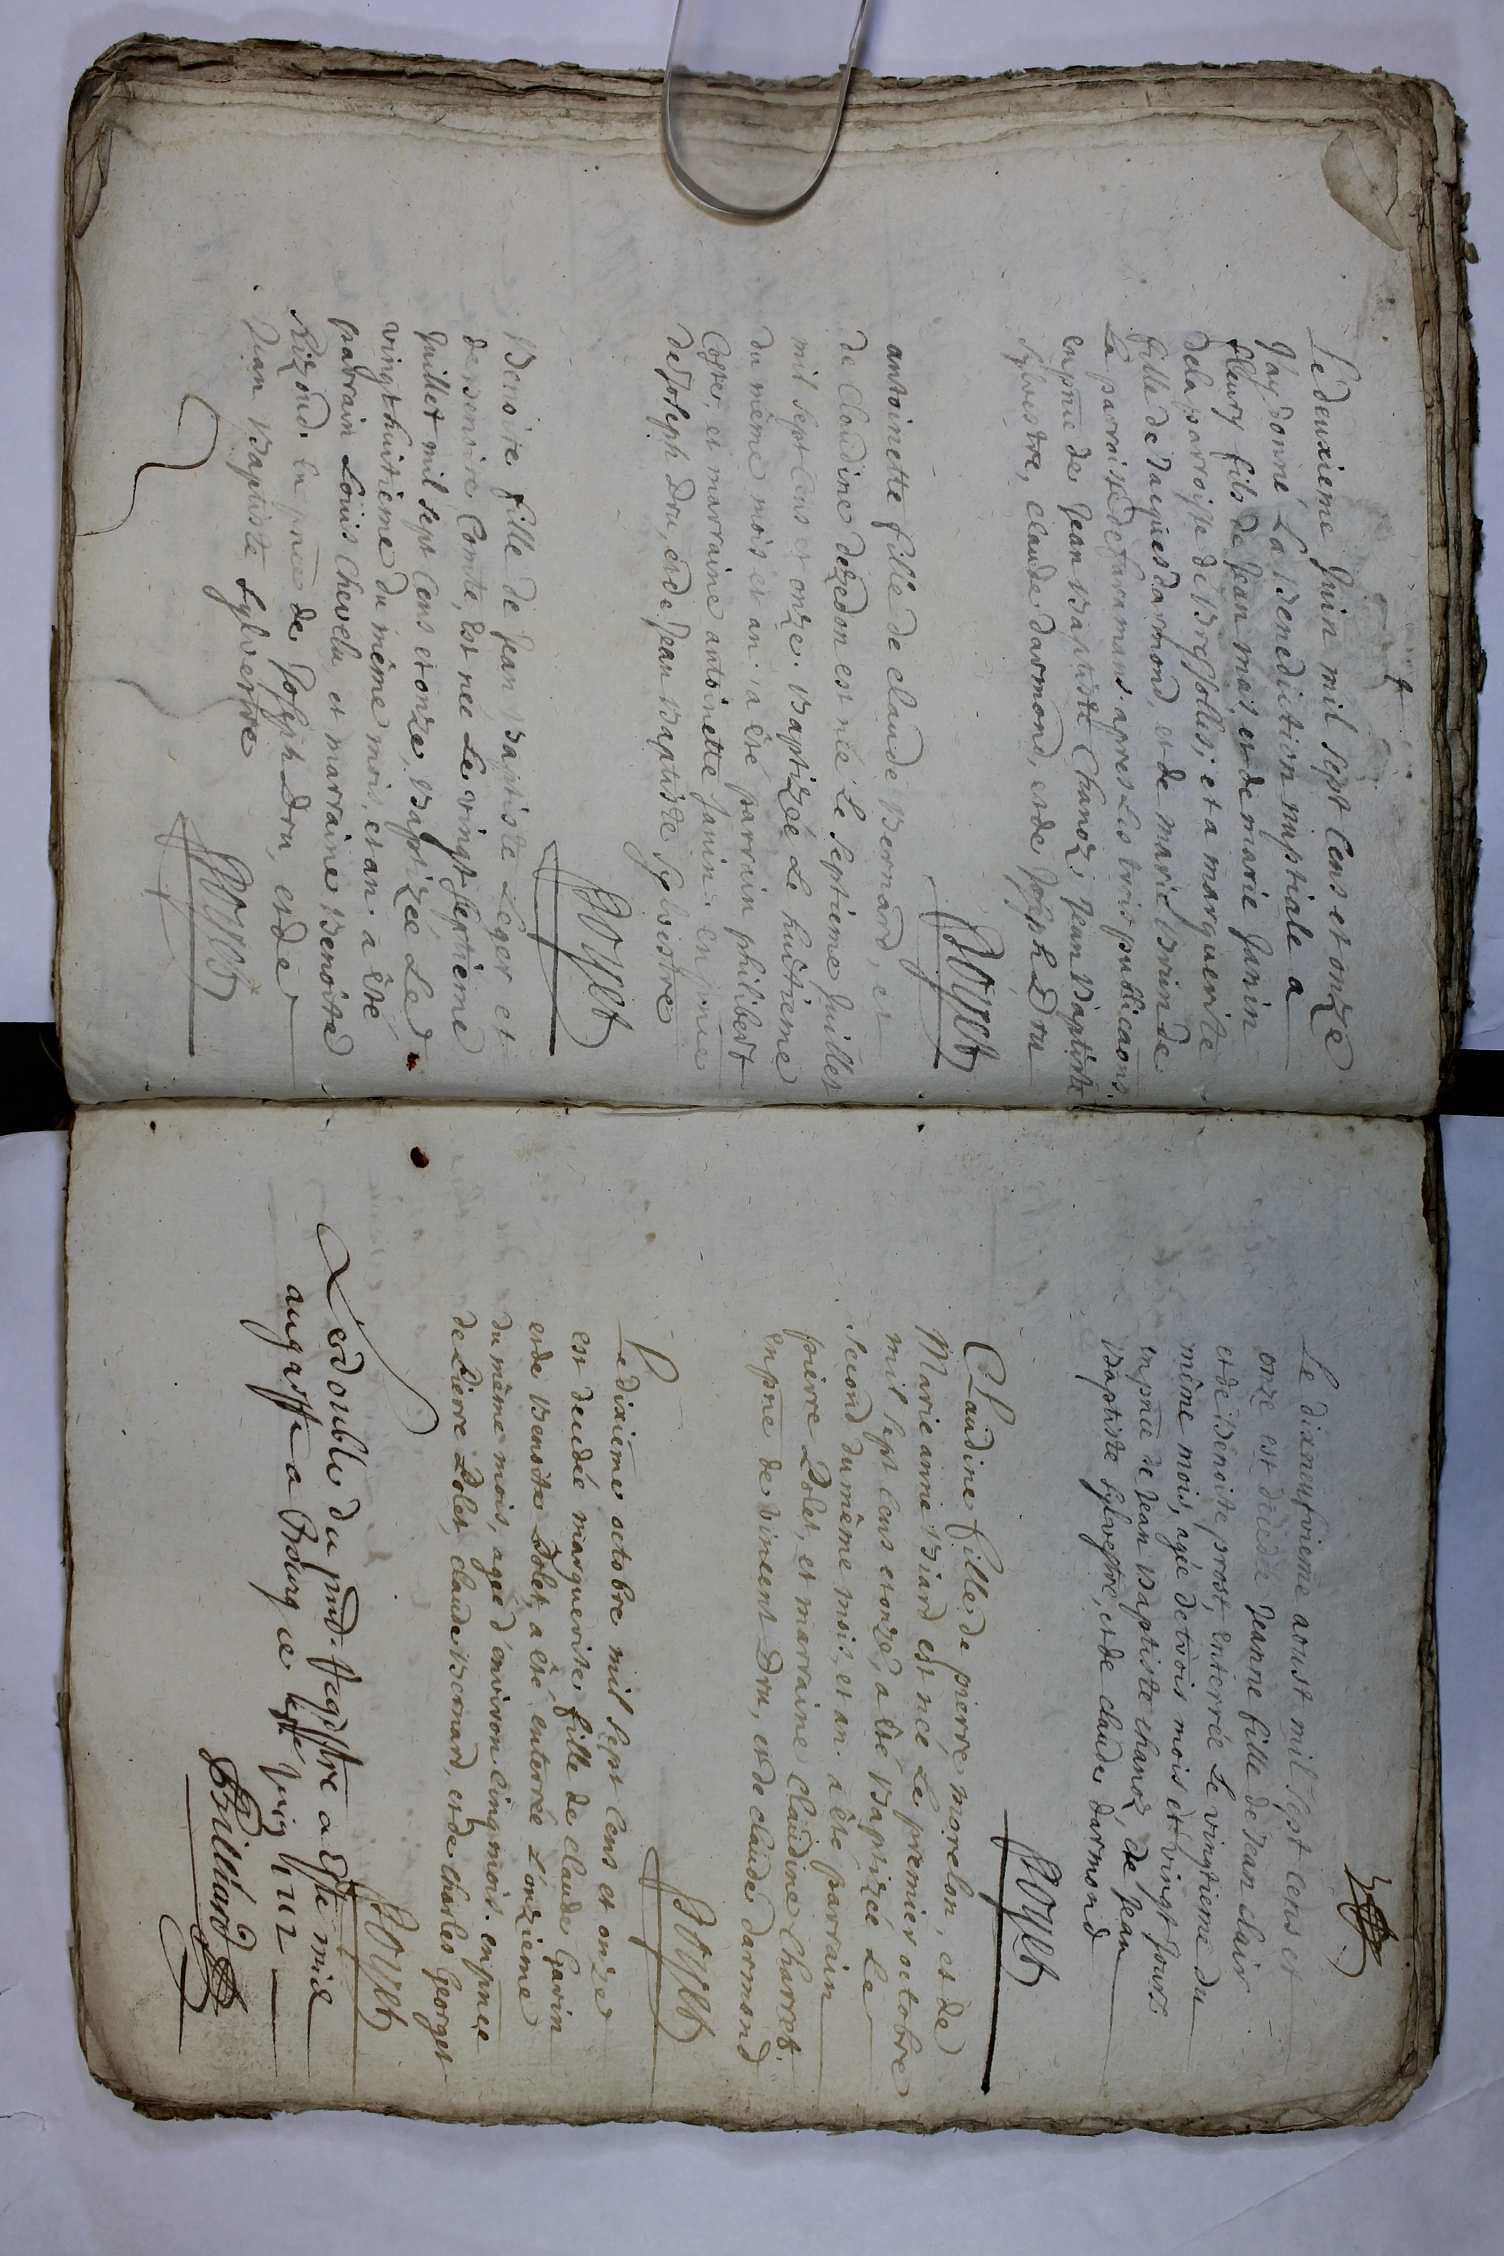 Le deuxieme Juin mil sept cens et onze
Jay donné La Benediction nuptiale a
fleury fils de Jean mas, et de marie Janin
dela parroisse de Bressolles, et a marguerite
fille de Jacques darmond, et de marie Brun de
La parroisse de apres Les trois publicaons
en pnce de Jean Baptiste Chanoz, Jean Baptiste
Sylvestre, claude darmond, et de Joseph Dru
antoinette fille de claude Bernard, et
de Claudine dezedon est née Le septieme Juillet
mil sept cens et onze. Baptizée Le huictieme
du même mois et an. a êté parrain philibert
et marraine antoinette Janin. en pnce
de Joseph Dru, et de Jean Baptiste Sylvestre
Benoite fille de Jean Baptiste Leger et
de Benoite Comte, est née Le vingt septieme
Juillet mil sept cens et onze, Baptizée Le
vingt huitieme du même mois, et an. a êté
parrain Louis Chevelu et marraine Benoite
en pnce de Joseph Dru, et de
Jean Baptiste Sylvestre
Le dixneufvieme aoust mil sept cens et
onze est decedée Jeanne fille de Jean clair
et de Benoite prost, enterrée Le vingtieme du
même mois, agée de trois mois et vingt jours
en pnce de Jean Baptiste chanoz, de Jean
Baptiste Sylvestre, et de claude darmond
Claudine fille de pierre morelon, et de
Marie anne Biard est née Le premier octobre
mil sept cens et onze, a êté Baptizée Le
second du même mois, et an. a êté parrain
pierre Polet, et marraine Claudine Charret.
en pnce de vincent Dru, et de claude darmond
Le dixiême octobre mil sept cens et onze
est decedée marguerite fille de claude Gavin
et de Benoite Polet, a êté enterrée L'onzieme
du même mois, agée d'environ cinq mois. en pnce
de Pierre Polet, claude Bernard, et de charles Georget
Le double du pnt. Registre a esté mis
au greffe a Bourg ce Juin 1712
Billiard